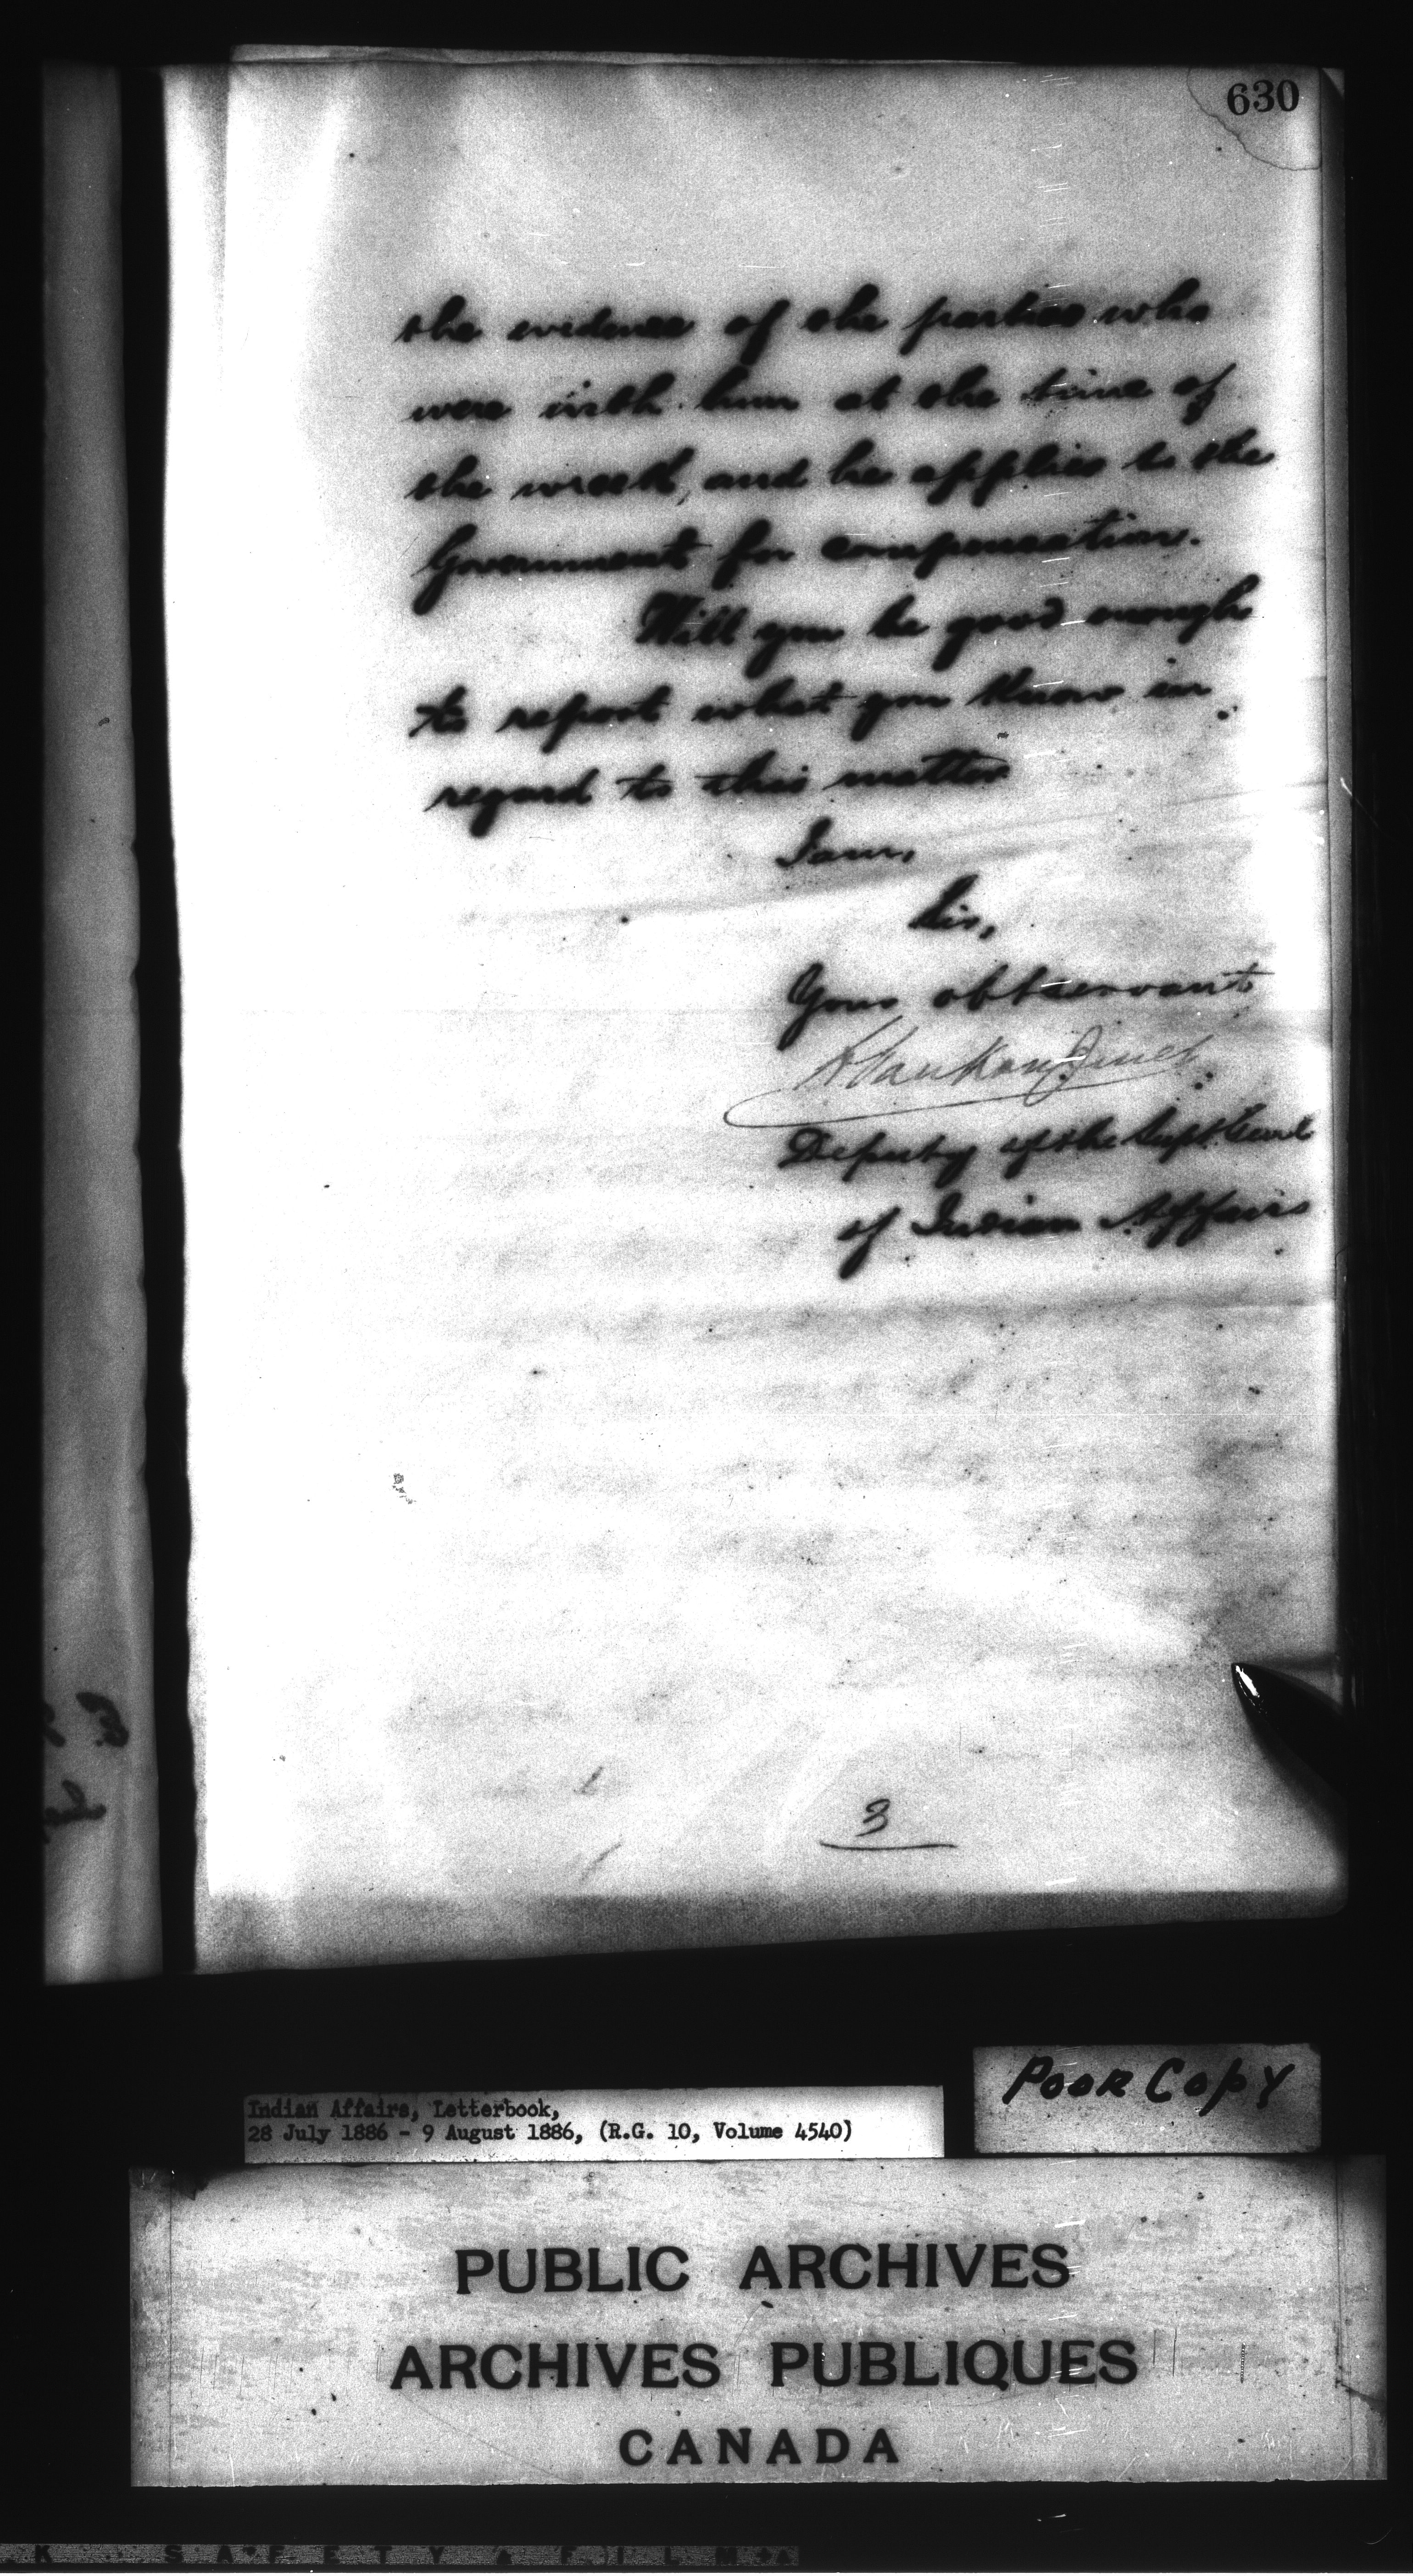 630
the evidence of the parties who
were with him at the time of
the wreck, and he applies to the
Government for compensation.
Will you be good enough
to report what you know in
regard to this matter
I am,
Sir,
Your obt servant
L. Vankoughnet
Deputy of the Supt Genl
of Indian Affairs
3
POOR COPY
Indian Affairs, Letterbook,
28 July 1886 - 9 August 1886, (R.G. 10, Volume 4540)
PUBLIC ARCHIVES
ARCHIVES PUBLIQUES
CANADA
K SAFETY FILM